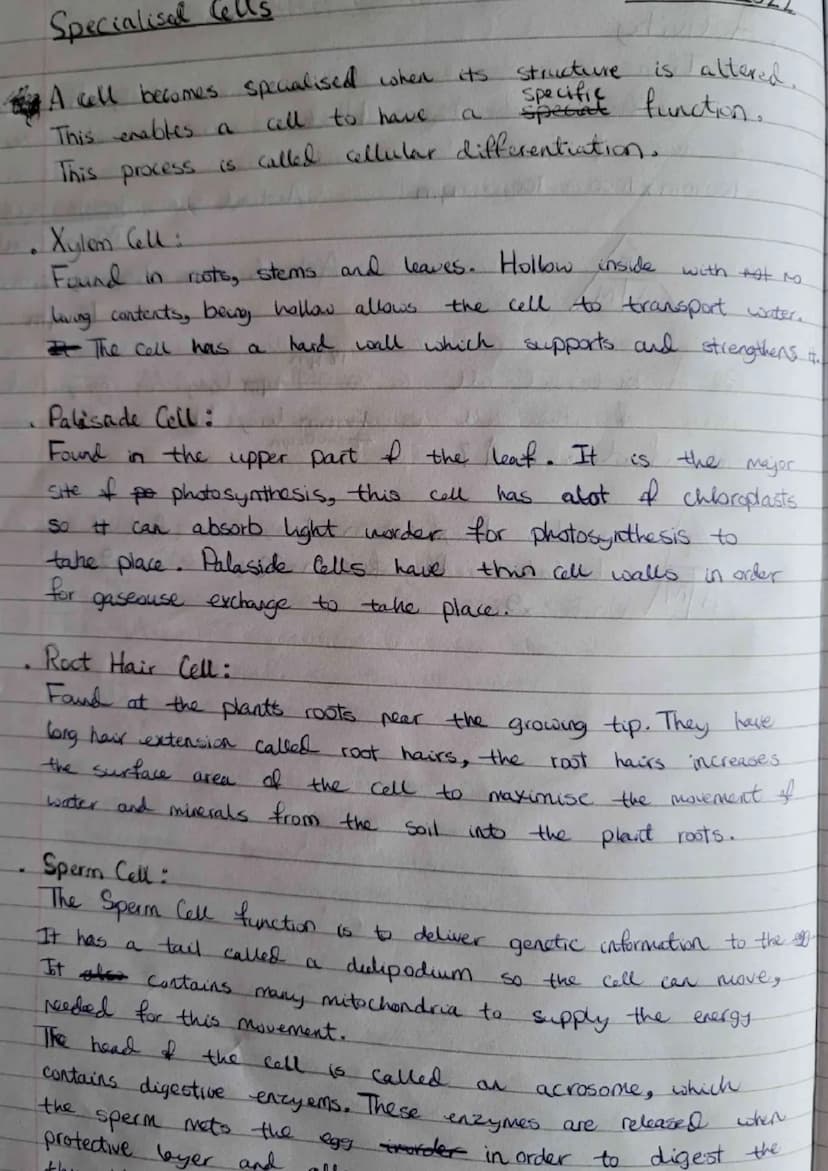 Specialised Cells
A cell becomes specialised when its structure is altered.
This enables a cell to have a specific function.
This process is called cellular differentiation.
• Xylem Cell:
Found in roots, stems and leaves. Hollow inside with no
living contents, being hollow allows the cell to transport water.
The cell has a hard wall which supports and strengthens it.
• Palisade Cell:
Found in the upper part of the leaf. It is the major
site of photosynthesis, this cell has alot of chloroplasts
so it can absorb light inorder for photosynthesis to
take place. Palaside Cells have thin cell walls in order
for gaseouse exchange to take place.
• Root Hair Cell:
Found at the plants roots near the growing tip. They have
long hair extension called root hairs, the root hairs increases
the surface area of the cell to maximise the movement of
water and minerals from the soil into the plant roots.
• Sperm Cell:
The Sperm Cell function is to deliver genetic information to the egg
It has a tail called a so the cell can move,
It contains many mitochondria to supply the energy
needed for this movement.
The head of the cell is called an acrosome, which
contains digestive enzyems. These enzymes are released when
the sperm mets the egg in order to digest the
protective layer and